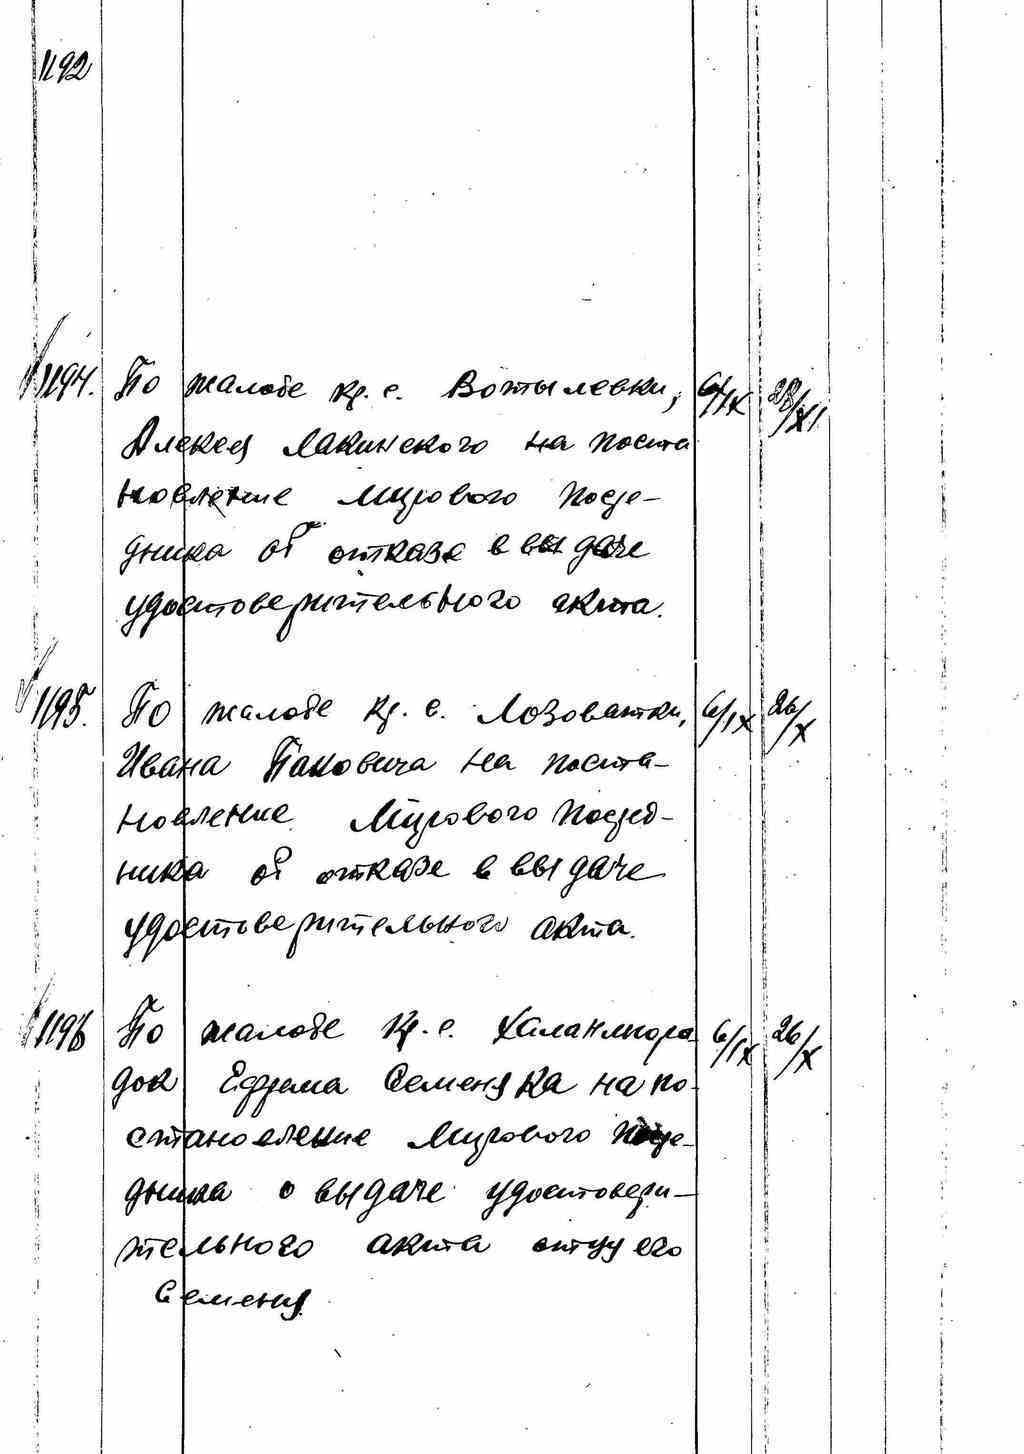 1192
1194. По жалобе кр. с. Вотылевки, 6/IX 28/XI
Алексея Лакинского на поста
новление Мирового Посре-
дника об отказе в выдаче
удостоверительного акта.
1195. По жалобе кр. с. Лозоватки, 6/IX 26/X
Ивана Паковича на поста-
новление Мирового Посред-
ника об отказе в выдаче
удостоверительного акта.
1196 По жалобе кр. с. 6/IX 26/X
док Ефрема Семеняка на по-
становление Мирового Посре-
дника о выдаче удостовери-
тельного акта отцу его
Семену